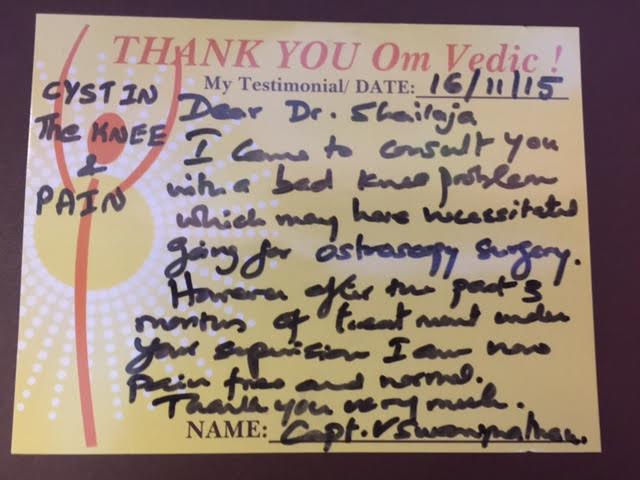 THANK YOU Om Vedic !
My Testimonial/ DATE: 16/11/15
CYST IN
The KNEE
&
PAIN
Dear Dr. Shailaja
I came to consult you
with a bad knee problem
which may have necessitated
going for astroscopy surgery.
However after the past 3
months of treatment under
your supervision I am now
pain free and normal.
Thank you very much.
NAME: Capt. V